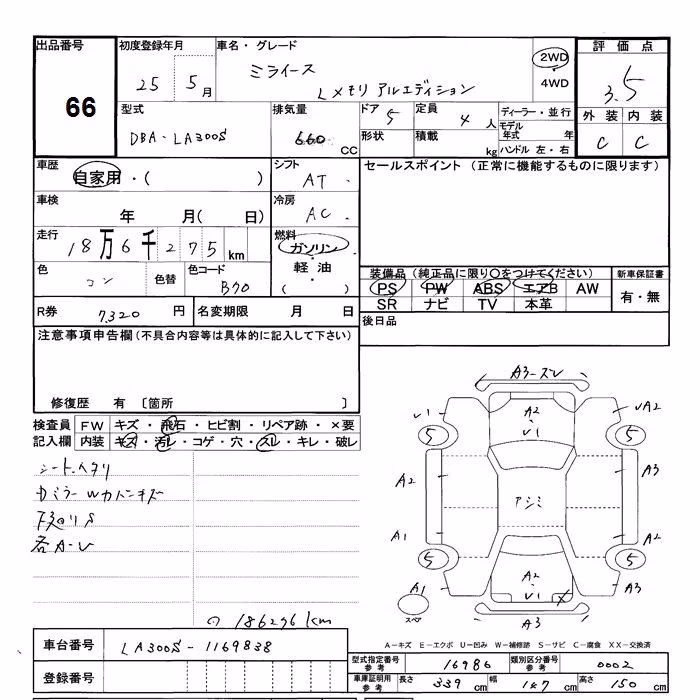 出品番号
66
初度登録年月
25 5月
車名・グレード
ミライース
Lメモリアルエディション
2WD
4WD
評価点
3.5
外装 内装
C C
型式
DBA-LA300S
排気量
660 CC
ドア 5
形状
定員 4人
積載 kg
ディーラー・並行
モデル年式 年
ハンドル 左・右
車歴
自家用・( )
シフト
AT
セールスポイント (正常に機能するものに限ります)
車検
年 月( 日)
冷房
AC
走行
18万6千275km
燃料
ガソリン
・
軽油
( )
色
コン
色替
色コード
B70
装備品 (純正品に限り○をつけてください)
PS PW ABS エアB AW
SR ナビ TV 本革
新車保証書
有・無
R券
7,320円
名変期限 月 日
後日品
注意事項申告欄(不具合内容等は具体的に記入して下さい)
修復歴 有 〔箇所 〕
検査員記入欄
FW キズ・飛石・ヒビ割・リペア跡・×要
内装 キズ・汚レ・コゲ・穴・スレ・キレ・破レ
シートヘタリ
各A-U
186296km
A3-ズレ
U1
A2
U1
A2
5
5
A2
A3
アシミ
A1
A2
5
5
A2
U1
A1
A3
スペア
A3
A-キズ E-エクボ U-凹み W-補修跡 S-サビ C-腐食 XX-交換済
車台番号
LA300S-1169838
登録番号
型式指定番号参考
16986
類別区分番号参考
0002
車庫証明用参考
長さ 339cm 幅 147cm 高さ 150cm